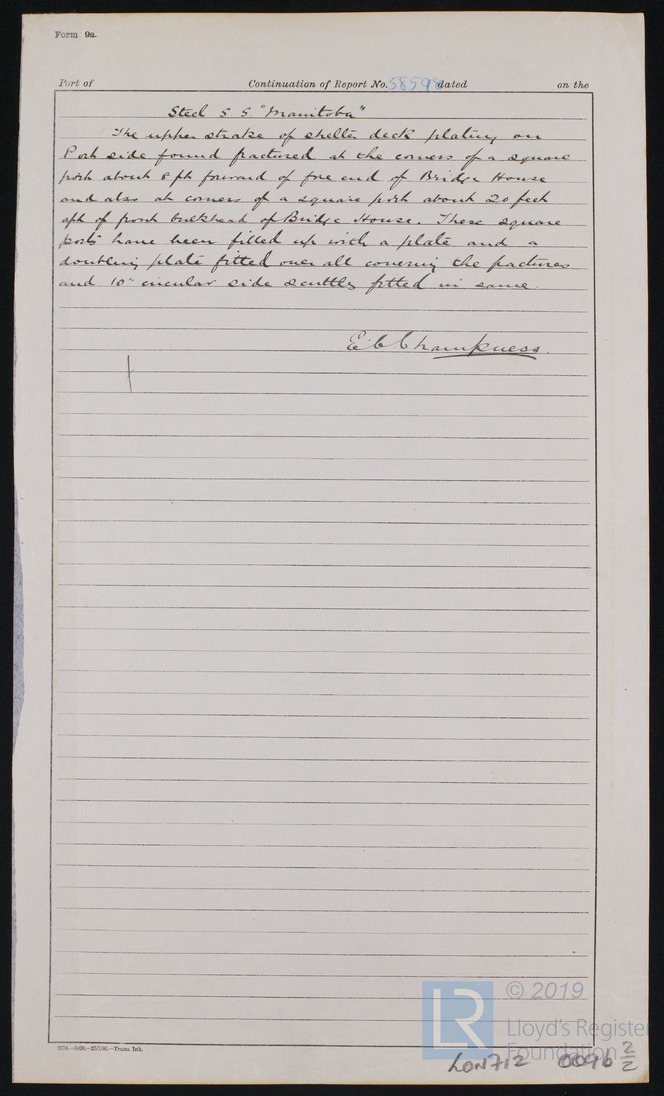 Form 9a.
Port of Continuation of Report No. 58598 dated on the
Steel S S "Manitoba"
The upper strake of shelter deck plating on
Port side found fractured at the corners of a square
port about 8 ft forward of fore end of Bridge House
and also at corners of a square port about 20 feet
aft of front bulkhead of Bridge House. These square
ports have been filled up with a plate and a
doubling plate fitted over all covering the fractures
and 10" circular side scuttles fitted in same.
E. C. Champness.
Trans. Ink.
© 2019
LR
Lloyd's Register
Foundation
LON712 0096 2/2